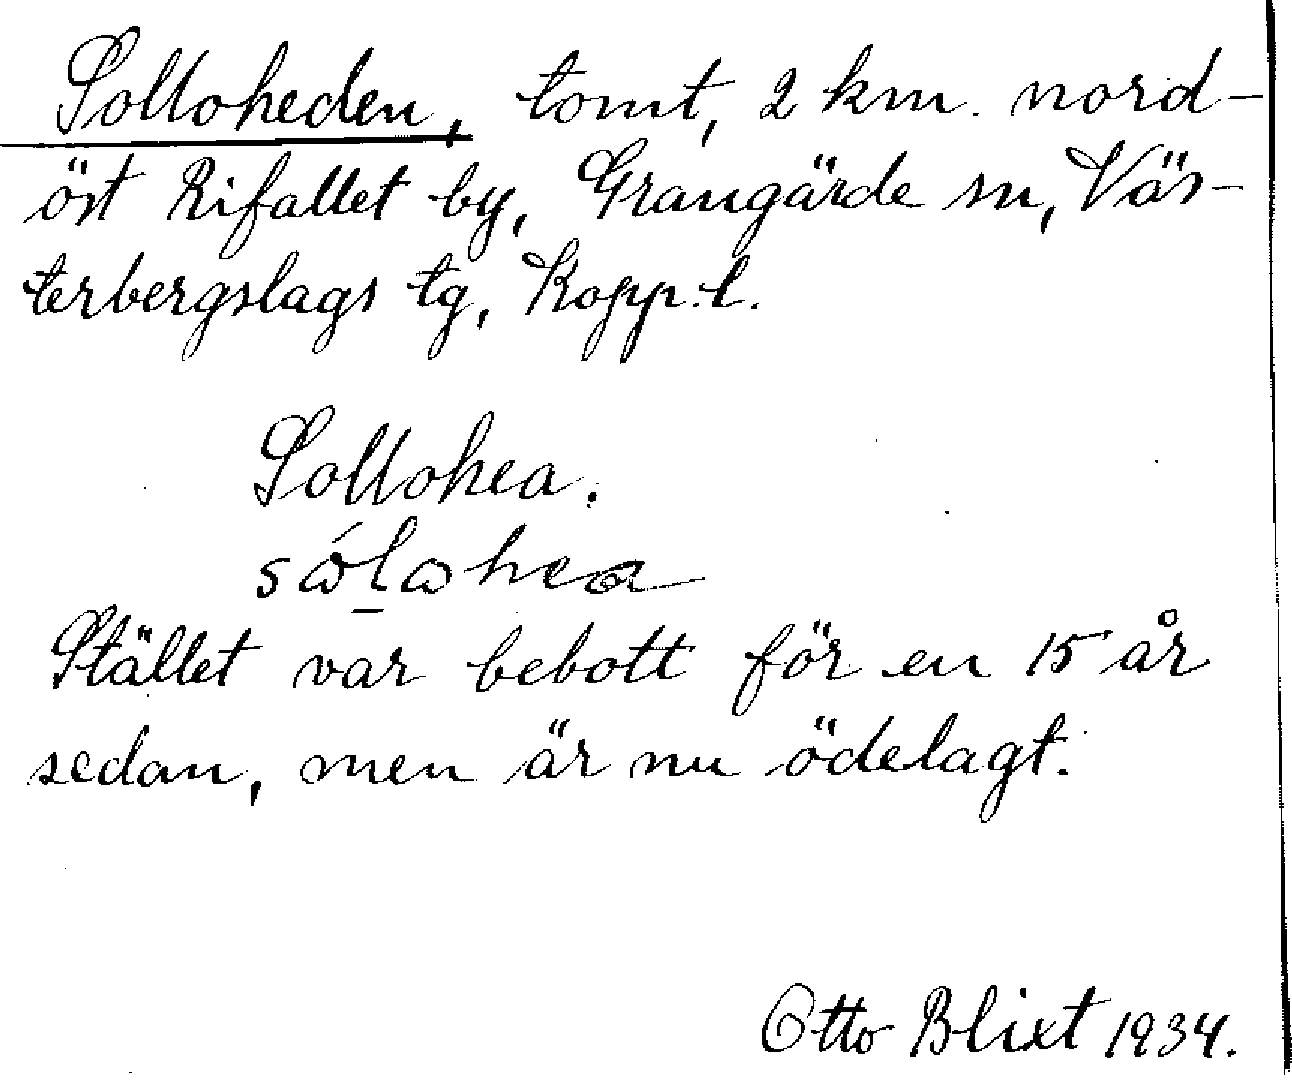 Solloheden, tomt, 2 km. nord-
öst Rifallet by, Grangärde sn, Väs-
terbergslags tg, Kopp. l.
Sollohea.
Stället var bebott för en 15 år
sedan, men är nu ödelagt.
Otto Blixt 1934.